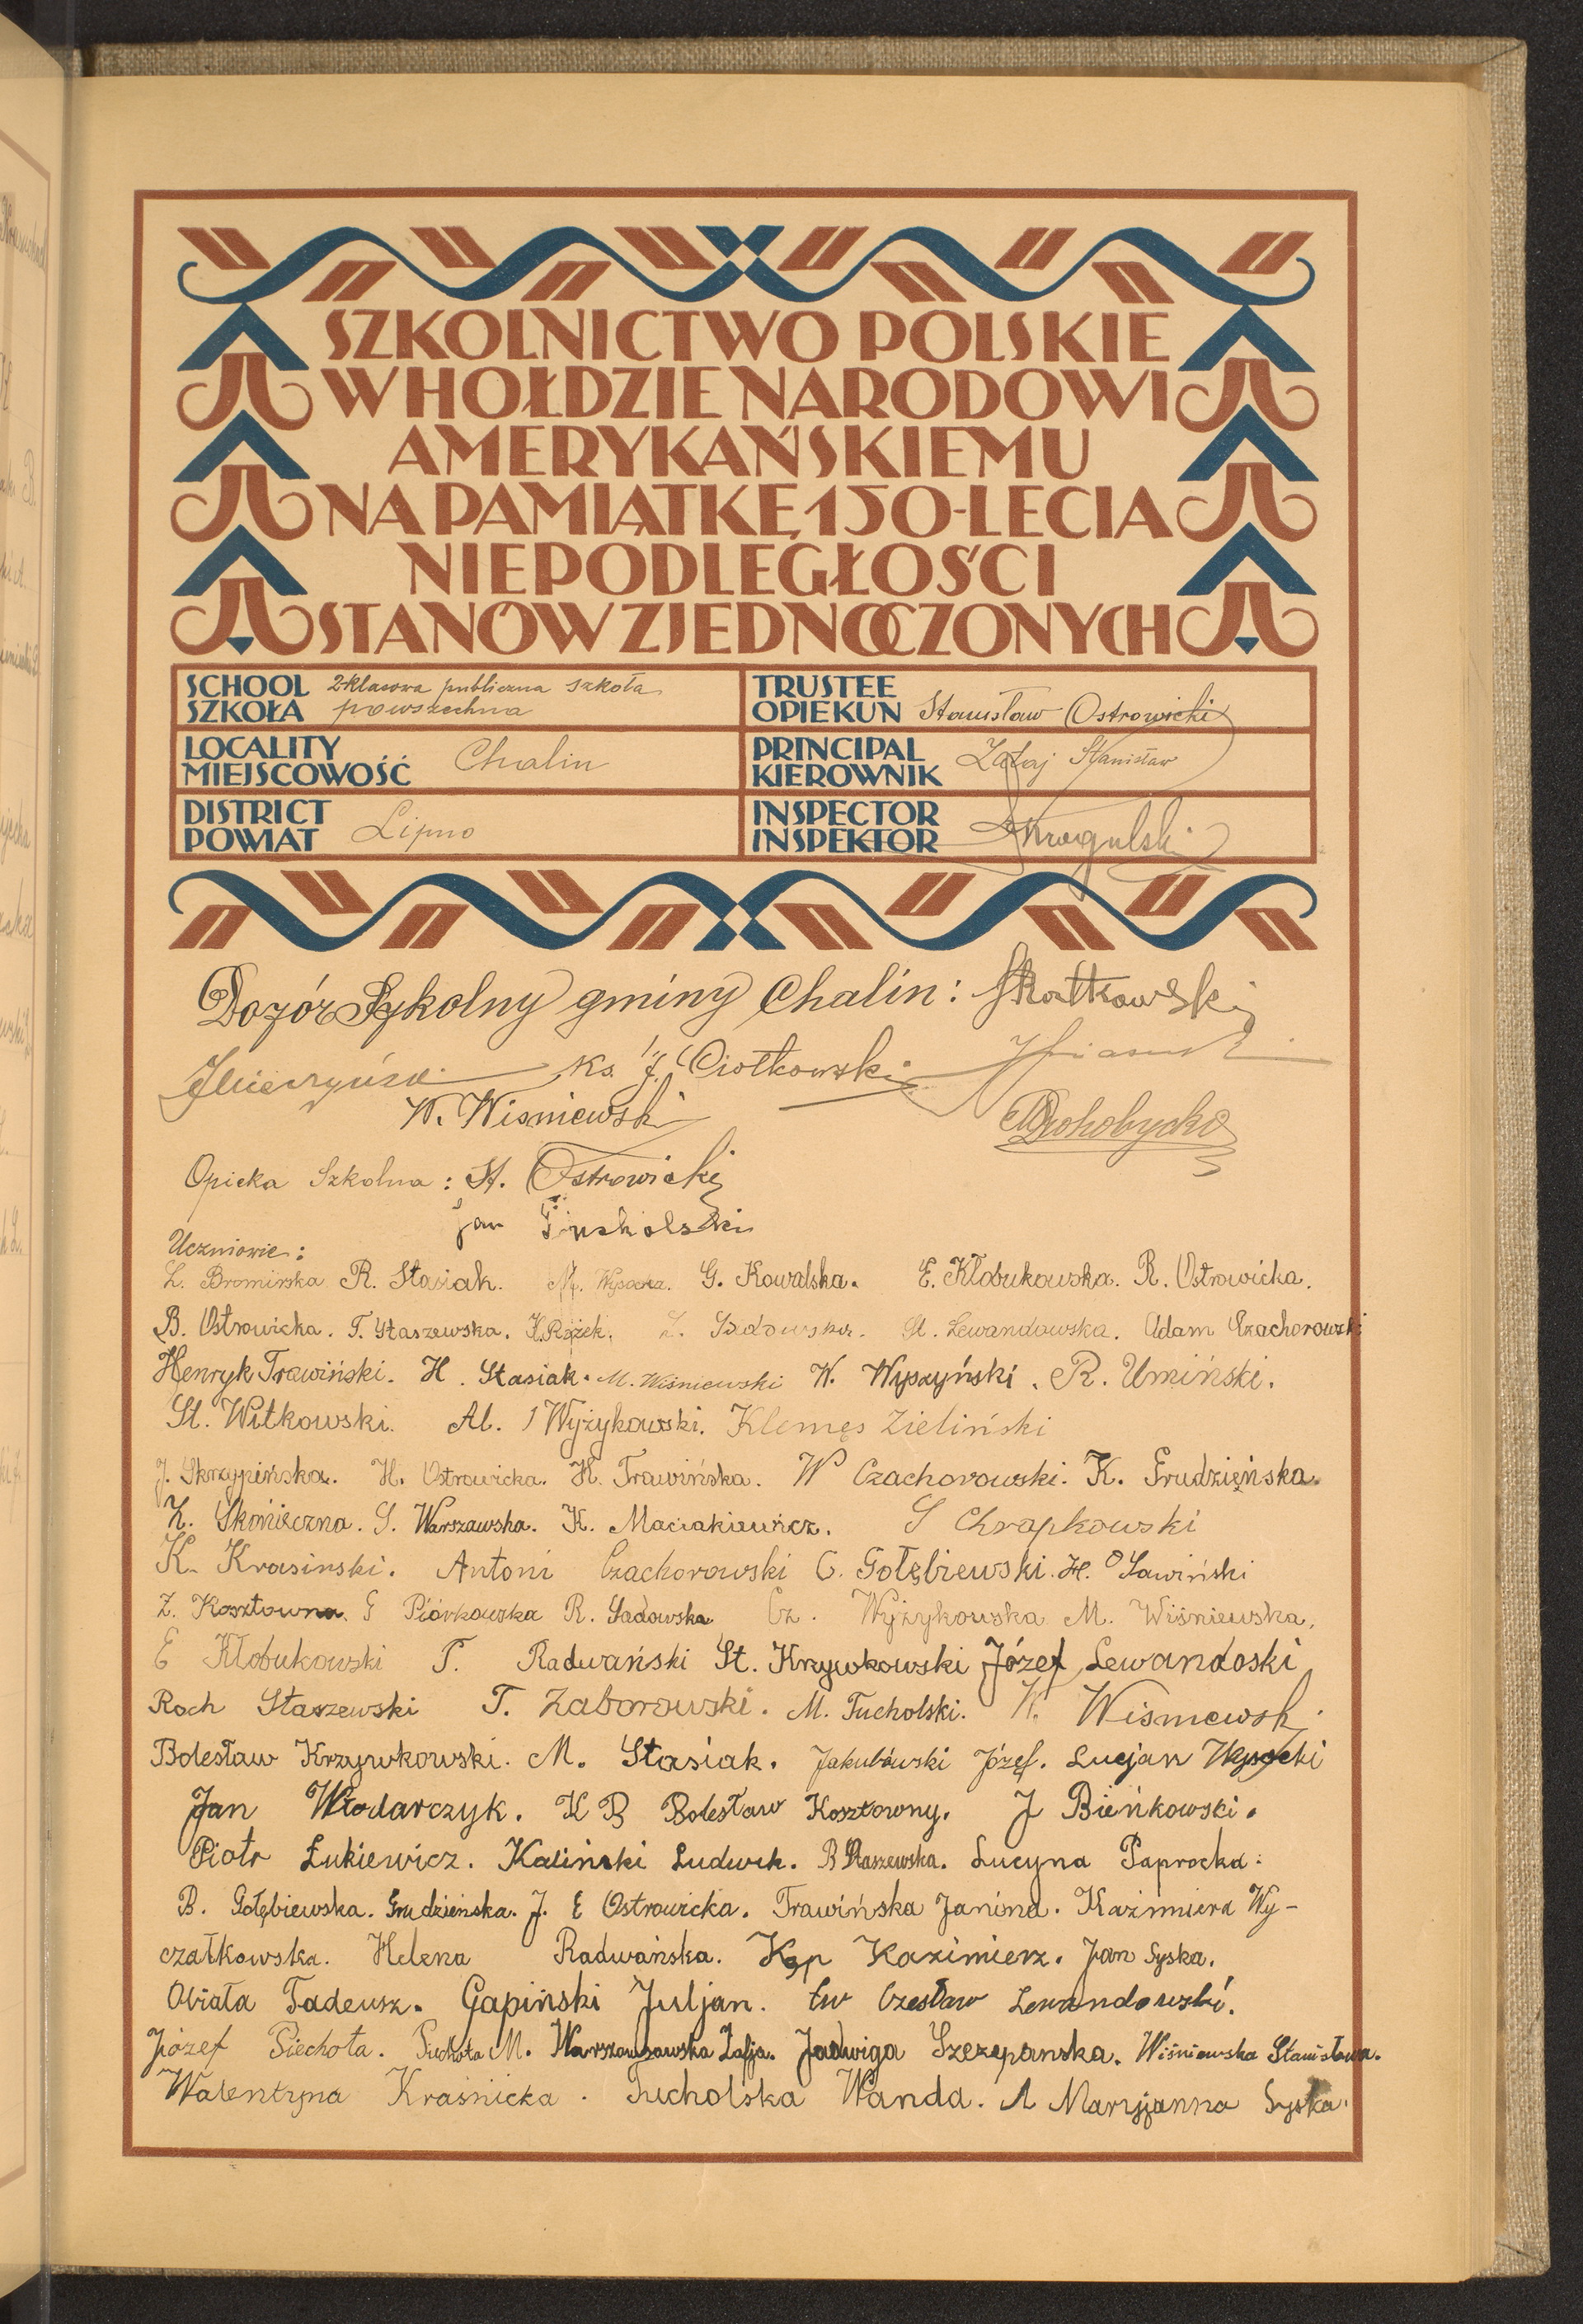 SZKOLNICTWO POLSKIE
W HOŁDZIE NARODOWI
AMERYKAŃSKIEMU
NA PAMIĄTKĘ 150-LECIA
NIEPODLEGŁOŚCI
STANÓW ZJEDNOCZONYCH
SCHOOL
SZKOŁA
2-klasowa publiczna szkoła
powszechna
TRUSTEE
OPIEKUN
Stanisław Ostrowicki
LOCALITY
MIEJSCOWOŚĆ
Chalin
PRINCIPAL
KIEROWNIK
Stanisław
DISTRICT
POWIAT
Lipno
INSPECTOR
INSPEKTOR
Dozór Szkolny gminy Chalin:
ks. J. Ciołkowski
W. Wisniewski
Opieka Szkolna: St. Ostrowicki
Jan Tucholski
Uczniowie:
Z. Bromirska R. Stasiak. M. Wysocka. G. Kowalska. E. Kłobukowska. R. Ostrowicka.
B. Ostrowicka. T. Staszewska. Z. Sadowska. St. Lewandowska. Adam Czachorowski
Henryk Trawiński. H. Stasiak. M. Wiśniewski W. Wyszyński. R. Umiński.
St. Witkowski. Al. Wyżykowski. Klemęs Zieliński
J. Skrzypińska. H. Ostrowicka. H. Trawińska. W Czachorowski. K. Grudzięńska
Z. Skonieczna. S. Warszawska. K. Maciakiewicz. S Chrapkowski
K. Krasinski. Antoni Czachorowski C. Gołębiewski. H. Sawiński
Z. Kosztowna. G Piórkowska R. Sadowska Cz. Wyżykowska M. Wiśniewska.
E Kłobukowski T. Radwański St. Krzywkowski Józef Lewandoski
Roch Staszewski T. Zaborowski. M. Tucholski. W. Wismewski
Bolesław Krzywkowski. M. Stasiak. Jakubówski Józef. Lucjan Wysocki
Jan Włodarczyk. K B Bolesław Kosztowny. J Bieńkowski.
Piotr Łukiewicz. Kaliński Ludwik. B Staszewska. Lucyna Paprocka.
B. Gołębiewska. Grudzieńska. J. E Ostrowicka. Trawińska Janina. Kazimiera Wy-
czałkowska. Helena Radwańska. Kazimierz. Jan Syska.
Obiała Tadeusz. Gapiński Juljan. Czesław Lewandowski.
Józef Piechota. Piechota M. Zofja. Jadwiga Szczepanska. Wiśniewska Stanisława.
Walentyna Kraśnicka. Tucholska Wanda. Maryjanna Syska.